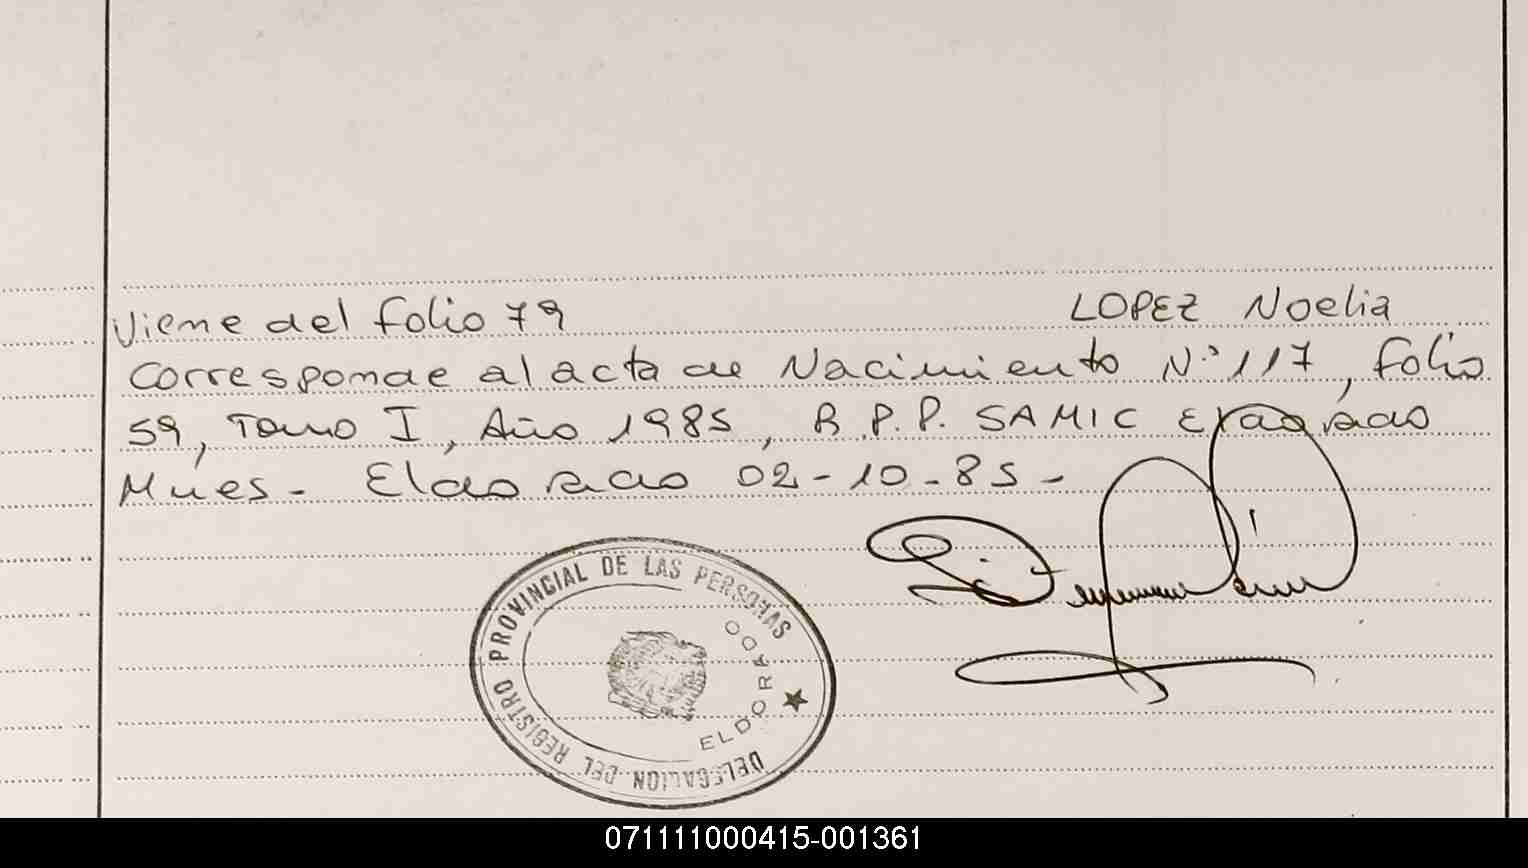 Viene del folio 79 LOPEZ Noelia
Corresponde al acta de Nacimiento Nº 117, folio
59, Tomo I, Año 1985, R.P.P. SAMIC Eldorado
Mnes - Eldorado 02-10-85-
DELEGACION DEL REGISTRO PROVINCIAL DE LAS PERSONAS
ELDORADO
071111000415-001361